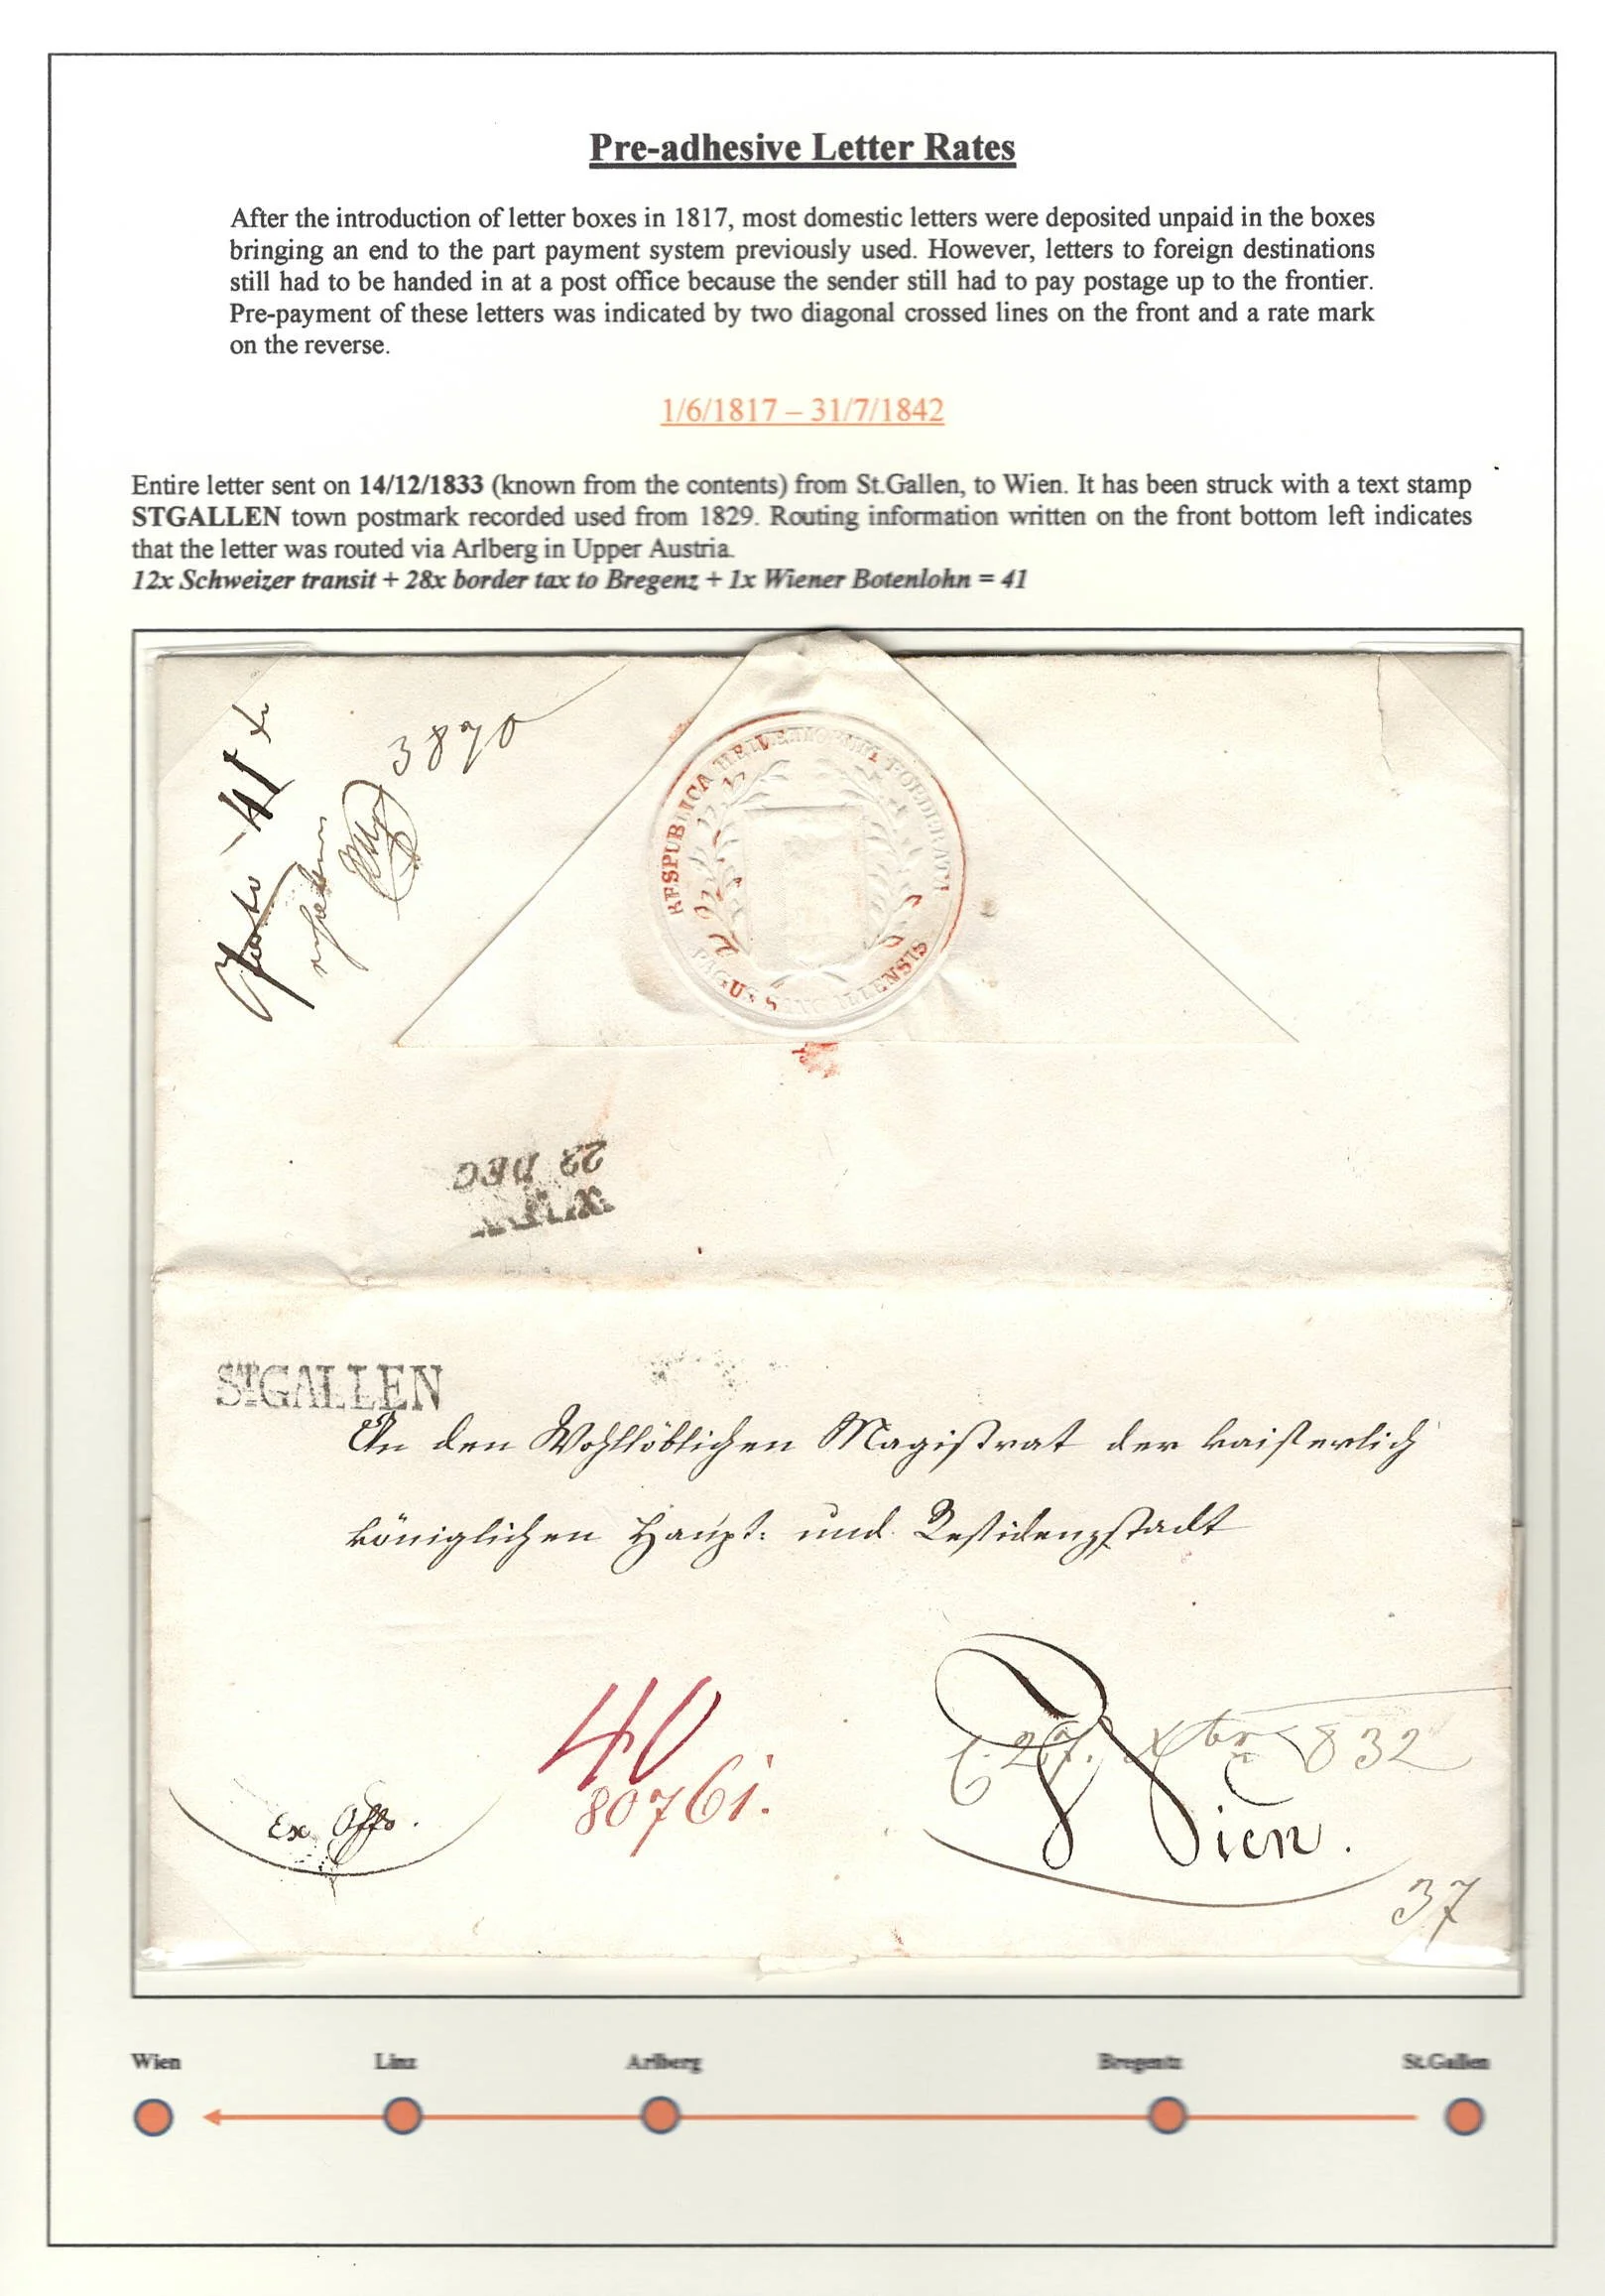 Pre-adhesive Letter Rates
After the introduction of letter boxes in 1817, most domestic letters were deposited unpaid in the boxes
bringing an end to the part payment system previously used. However, letters to foreign destinations
still had to be handed in at a post office because the sender still had to pay postage up to the frontier.
Pre-payment of these letters was indicated by two diagonal crossed lines on the front and a rate mark
on the reverse.
1/6/1817 – 31/7/1842
Entire letter sent on 14/12/1833 (known from the contents) from St.Gallen, to Wien. It has been struck with a text stamp
STGALLEN town postmark recorded used from 1829. Routing information written on the front bottom left indicates
that the letter was routed via Arlberg in Upper Austria.
12x Schweizer transit + 28x border tax to Bregenz + 1x Wiener Botenlohn = 41
Porto 41 x
3870
RESPUBLICA HELVETIORUM FOEDERATI
PAGUS SANGALLENSIS
WIEN
22 DEC
ST GALLEN
An den Wohllöblichen Magistrat der kaiserlich
königlichen Haupt- und Residenzstadt
40
80761.
27. Xbr 832
Ex Offo.
Wien.
37
Wien Linz Arlberg Bregentz St.Gallen